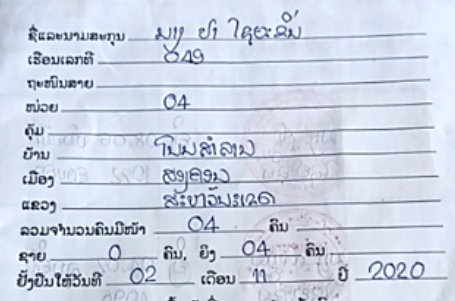 ຊື່ແລະນາມສະກຸນ ນາງ ຢາ ໄຊຍະສິນ
ເຮືອນເລກທີ 049
ຖະໜົນສາຍ
ໜ່ວຍ 04
ຄຸ້ມ
ບ້ານ ໂພນສຳລານ
ເມືອງ ສອງຄອນ
ແຂວງ ສະຫວັນນະເຂດ
ລວມຈຳນວນຄົນມີໜ້າ 04 ຄົນ
ຊາຍ 0 ຄົນ, ຍິງ 04 ຄົນ
ຢັ້ງຢືນໃຫ້ວັນທີ 02 ເດືອນ 11 ປີ 2020